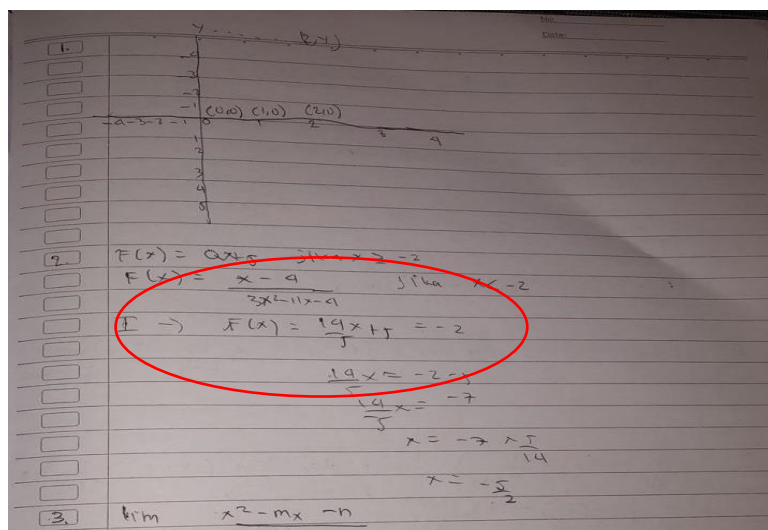 No.
Date:
1.
Y
-1
(0,0) (1,0) (2,0)
-4 -3 -2 -1 0 1 2 3 4
1
2
3
4
5
2. F(x) = ax+5 jika x ≥ -2
F(x) = x - 4 / 3x²-11x-4 jika x < -2
I → F(x) = 14/5 x + 5 = -2
14/5 x = -2 -5
14/5 x = -7
x = -7 × 5/14
x = -5/2
3. lim x² - mx - n